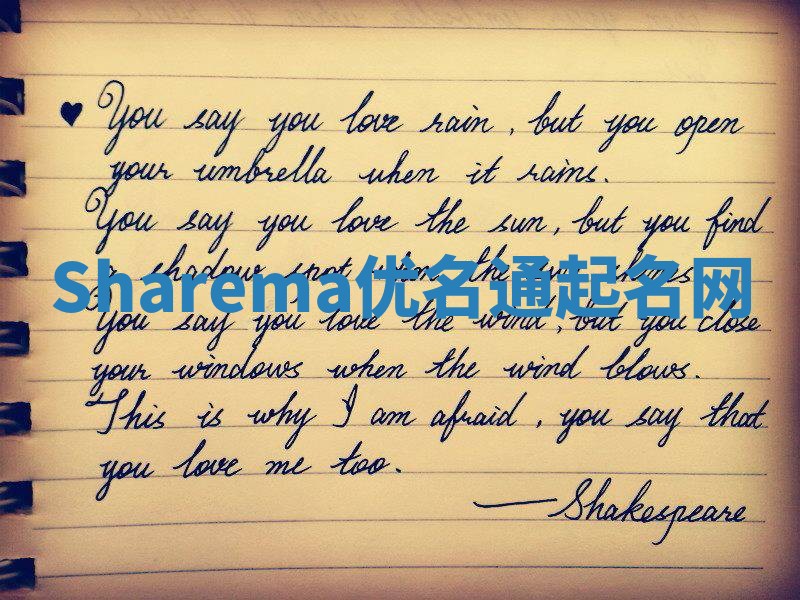 ♥ You say you love rain, but you open
your umbrella when it rains.
You say you love the sun, but you find
a shadow spot when the sun shines.
Sharema优名通起名网
You say you love the wind, but you close
your windows when the wind blows.
This is why I am afraid, you say that
you love me too.
—Shakespeare